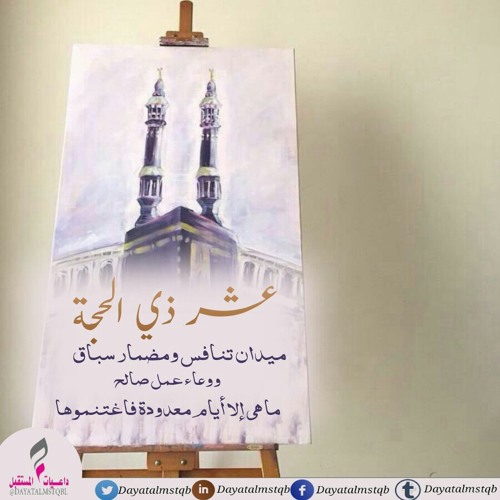 عشر ذي الحجة
ميدان تنافس ومضمار سباق
ووعاء عمل صالح
ما هي إلا أيام معدودة فاغتنموها
داعيات المستقبل
@DAYATALMSTQBL
Dayatalmstqb Dayatalmstqb Dayatalmstqb Dayatalmstqb